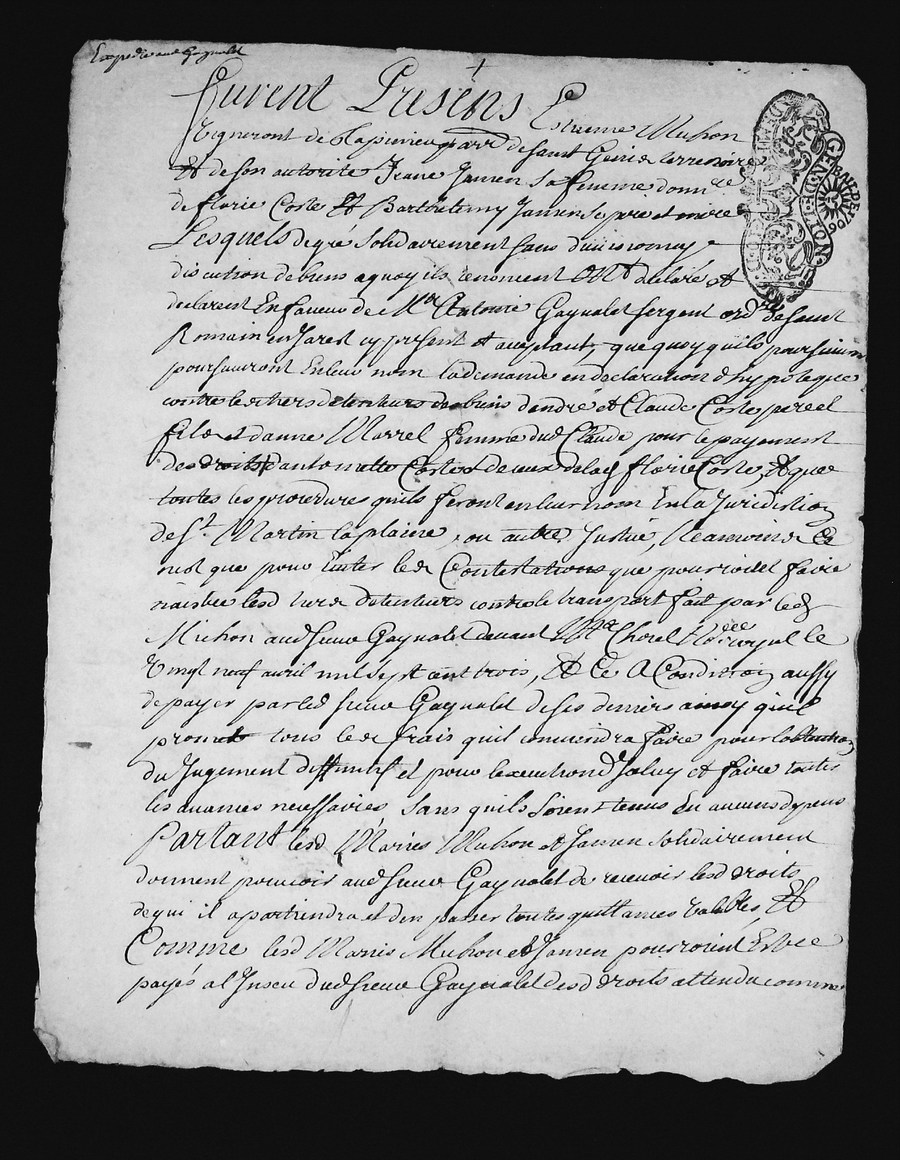 Expedié aud Gaynalet
furent Presens Estienne Michon
Vigneront de parr de Saint Genis terrenoire
Et de son autorité Jeane Jamen sa femme donre
de florie Coste Et Bartelemy Jamen se pere et mere
Lesquels de gré solidairement sans division ny
discution de biens a quoy ils renoncent ont declaré Et
declarent En faveur de Me Antoine Gaynalet sergent ordre de Saint
Romain en Jarest cy present et acceptant, que quoy qu'ils poursuivent
poursuivront En leur nom la demande en declaration d'hypoteque
contre les tiers detenteurs des biens d'andré et Claude Coste pere et
fils et d'anne Marrel femme dud Claude pour le payement
des droits d'antoinette Coste de ceux de lad florie Coste, Et que
toutes les procedure qu'ils feront en leur nom En la Juridiction
de St. Martin la plaine, ou autre Justice, Neamoins Ce
n'est que pour Eviter les Contestations que pourroient faire
naistre lesd tiers detenteurs contre le transport fait par led
Michon aud sieur Gaynalet devant Me Chorel Nore royal le
Vingt neuf avril mil sept cent trois, Et Ce A Condition aussy
de payer par led sieur Gaynalet de ses deniers ainsy qu'il
promet tous les frais qu'il conviendra faire pour l'obtention
du Jugement deffinitif et pour l'execution d'Iceluy et faire toutes
les avances necessaires sans qu'ils soient tenus En aucuns depens
Partant lesd Mariés Michon et Jamen solidairement
donnent pouvoir aud sieur Gaynalet de recevoir lesd droits
de qui il apartiendra et d'en passer toutes quittances valables, Et
Comme lesd Mariés Michon et Jamen pourroient Estre
payés a l'Inseu dud sieur Gaynalet desd droits attendu comme
GEN DE LYON
BAIL DE 1706